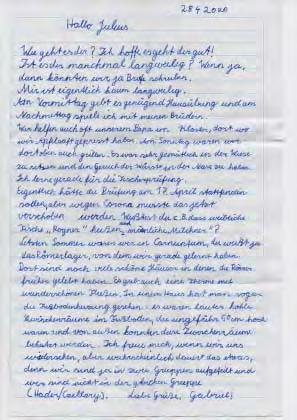 28 4 2020
Hallo Julius
Wie geht es dir? Ich hoffe es geht dir gut!
Ist es dir manchmal langweilig? Wenn ja,
dann könnten wir ja Briefe schreiben.
Mir ist eigentlich kaum langweilig.
Am Vormittag gebt es genügend Hausübung und am
Nachmittag spiele ich mit meinen Brüdern.
Wir helfen auch oft unserem Papa im dort wo
wir Apfelsaft gepresst haben. Am Sonntag waren wir
dort oben auch grillen. Es war sehr gemütlich in der Wiese
zu sitzen und den Geruch der Würste in der Nase zu haben.
Ich lerne gerade für die prüfung.
Eigentlich hätte die Prüfung am 17. April stattfinden
sollen, aber wegen Corona musste das jetzt
verschoben werden. Wußtest du z.B. dass weibliche
Fische „Rogner" heißen, und männliche Milchner"?
Letzten Sommer waren wir in Carnuntum, du weißt ja
das Römerlager, von dem wir gerade gelernt haben.
Dort sind noch viele schöne Häuser in denen die Römer
früher gelebt haben. Es gab auch eine Therme mit
wunderschönen Fließen. In einem Haus hat man sogar
die Fußbodenheizung gesehen - es waren lauter hohle
Zwischenräume im Fußboden, die ungefähr 50 cm hoch
waren und von außen konnten diese Zwischenräume
beheizt werden. Ich freue mich, wenn wir uns
wiedersehen, aber wahrscheinlich dauert das etwas,
denn wir sind ja in zwei Gruppen aufgeteilt und
wir sind nicht in der gleichen Gruppe
Liebe Grüße, Gabriel